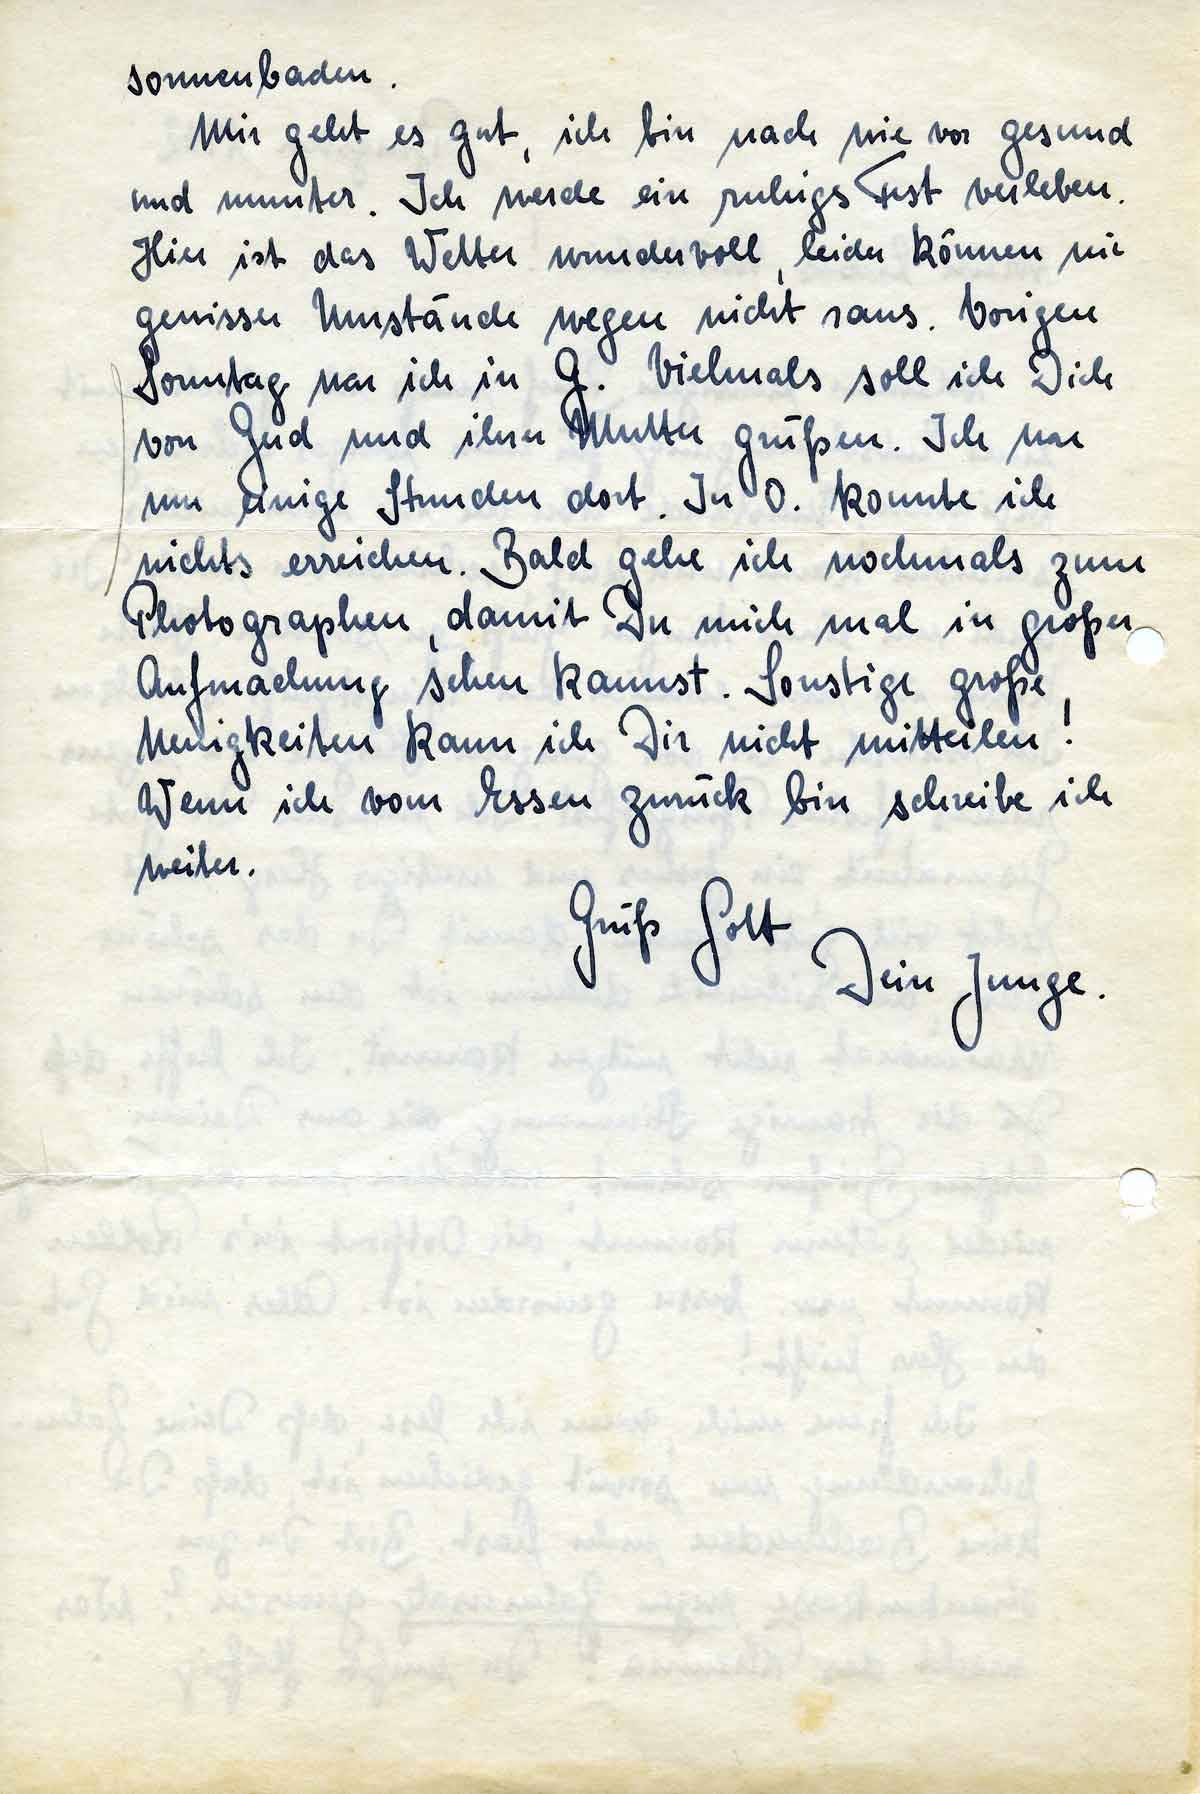 sonnenbaden.
Mir geht es gut, ich bin nach wie vor gesund
und munter. Ich werde ein ruhigs Fest verleben.
Hier ist das Wetter wundervoll, leider können wir
gewisser Umstände wegen nicht raus. Vorigen
Sonntag war ich in G. Vielmals soll ich Dich
von Gerd und ihrer Mutter grüßen. Ich war
nur einige Stunden dort. In O. konnte ich
nichts erreichen. Bald gehe ich nochmals zum
Photographen, damit Du mich mal in großer
Aufmachung sehen kannst. Sonstige große
Neuigkeiten kann ich Dir nicht mitteilen!
Wenn ich vom Essen zurück bin schreibe ich
weiter.
Grüß Gott
Dein Junge.